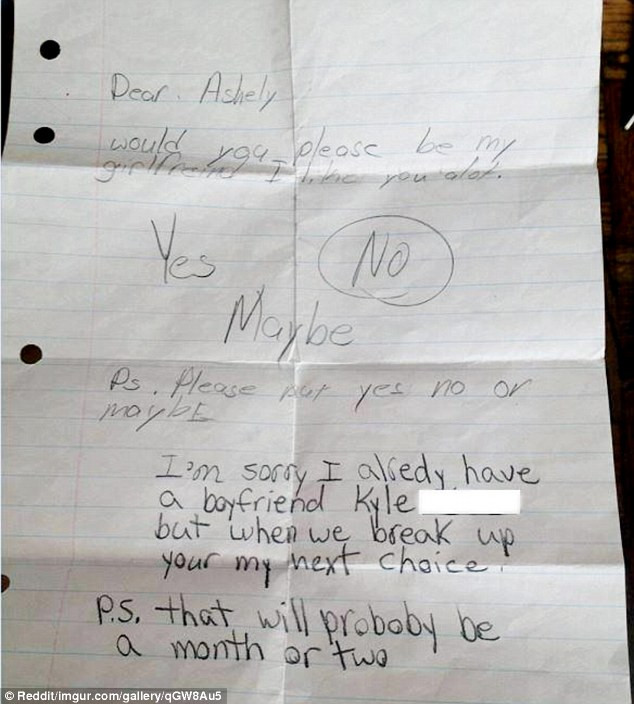 Dear. Ashely
would you please be my
girlfreind I like you alot.
Yes NO
Maybe
Ps. Please put yes no or
maybE
I'm sorry I alredy have
a boyfriend Kyle
but when we break up
your my next choice.
P.S. that will proboby be
a month or two
© Reddit/imgur.com/gallery/qGW8Au5